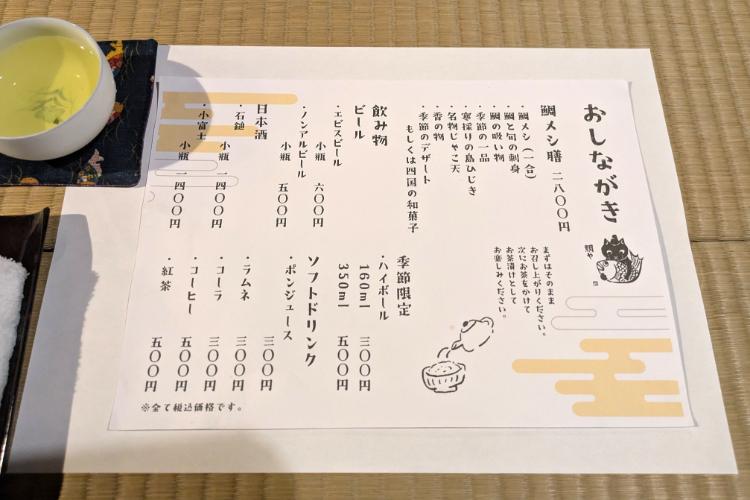 おしながき
鯛や
鯛メシ膳 二八〇〇円
・鯛メシ（一合）
・鯛と旬の刺身
・鯛の吸い物
・季節の一品
・寒採りの島ひじき
・名物じゃこ天
・香の物
・季節のデザート
もしくは四国の和菓子
まずはそのまま
お召し上がりください。
次にお茶をかけて
お茶漬けとして
お楽しみください。
飲み物
ビール
・エビスビール
小瓶 六〇〇円
・ノンアルビール
小瓶 五〇〇円
日本酒
・石鎚
小瓶 一四〇〇円
・小富士
小瓶 一四〇〇円
季節限定
・ハイボール
160ml 三〇〇円
350ml 五〇〇円
ソフトドリンク
・ポンジュース
三〇〇円
・ラムネ 三〇〇円
・コーラ 三〇〇円
・コーヒー 五〇〇円
・紅茶 五〇〇円
※全て税込価格です。